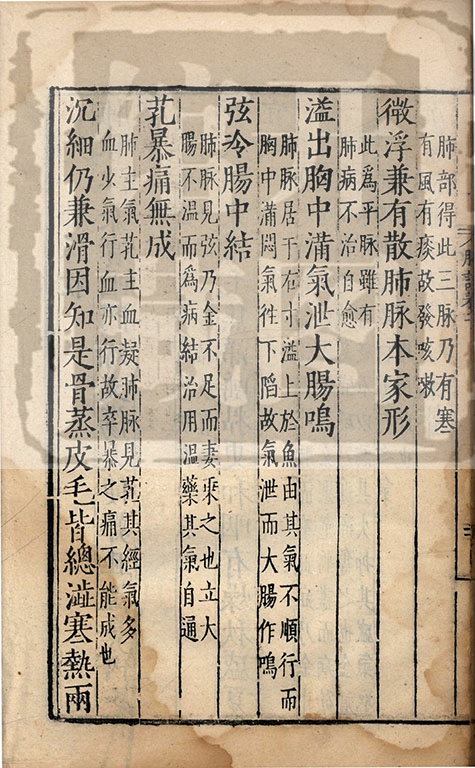 肺部得此三脉乃有寒
有風有痰故發咳嗽
微浮兼有散肺脉本家形
此爲平脉雖有
肺病不治自愈
溢出胸中滿氣泄大腸鳴
肺脉居于右寸溢上於魚由其氣不順行而
胸中滿悶氣徃下陷故氣泄而大腸作鳴
弦冷腸中結
肺脉見弦乃金不足而妻乘之也立大
腸不温而爲病結治用温藥其氣自通
芤暴痛無成
肺主氣芤主血凝肺脉見芤其經氣多
血少氣行血亦行故卒暴之痛不能成也
沉細仍兼滑因知是骨蒸皮毛皆總澁寒熱兩